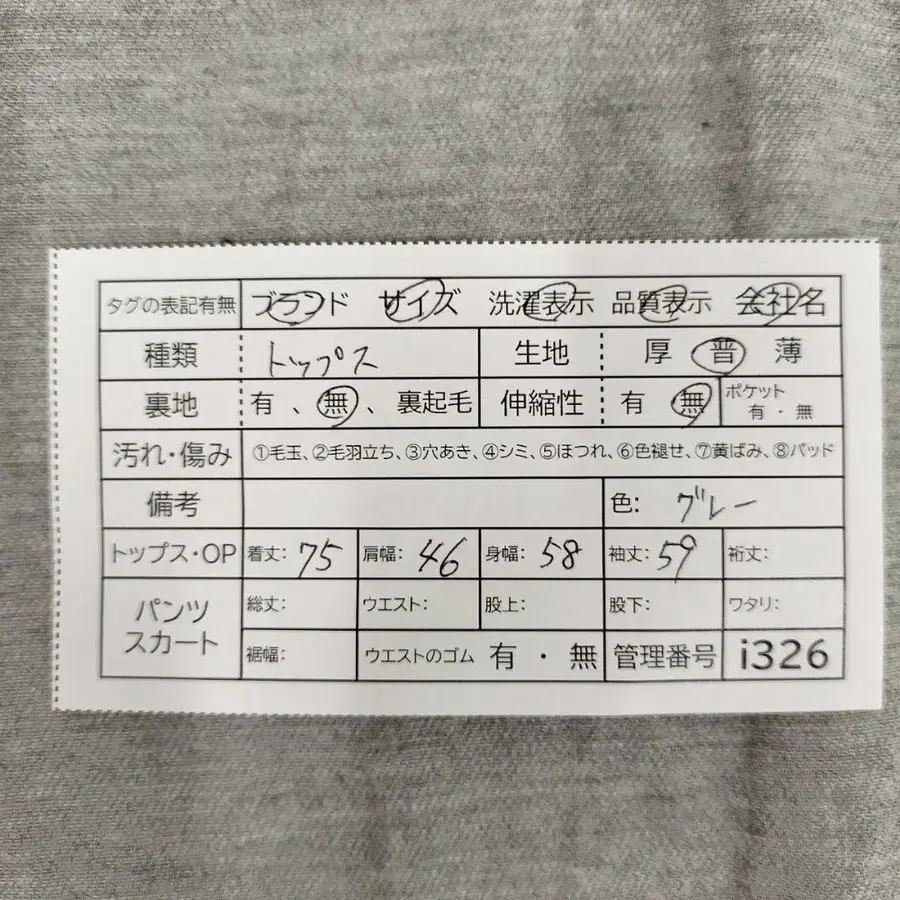 タグの表記有無 ブランド サイズ 洗濯表示 品質表示 会社名
種類 トップス 生地 厚 普 薄
裏地 有、無、裏起毛 伸縮性 有 無 ポケット 有・無
汚れ・傷み ①毛玉、②毛羽立ち、③穴あき、④シミ、⑤ほつれ、⑥色褪せ、⑦黄ばみ、⑧パッド
備考 色: グレー
トップス・OP 着丈: 75 肩幅: 46 身幅: 58 袖丈: 59 裄丈:
パンツ スカート 総丈: ウエスト: 股上: 股下: ワタリ:
裾幅: ウエストのゴム 有・無 管理番号 i326